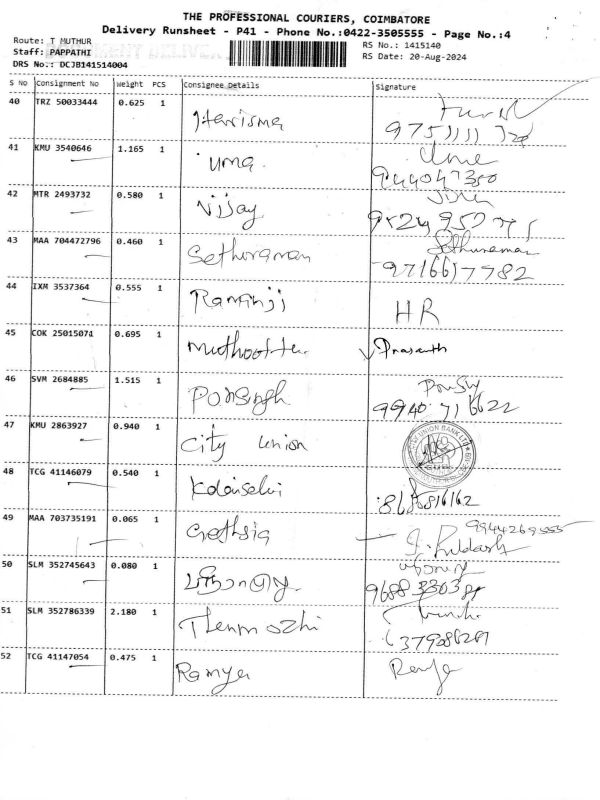 THE PROFESSIONAL COURIERS, COIMBATORE
Delivery Runsheet - P41 - Phone No.:0422-3505555 - Page No.:4
Route: T MUTHUR
RS No.: 1415140
Staff: PAPPATHI
RS Date: 20-Aug-2024
DRS No.: DCJB141514004
S No Consignment No Weight PCS Consignee Details Signature
40 TRZ 50033444 0.625 1 Harisma
41 KMU 3540646 1.165 1 uma
9444047350
42 MTR 2493732 0.580 1 Vijay
43 MAA 704472796 0.460 1 Sethuraman Sethuraman
9716617782
44 IXM 3537364 0.555 1 Ramanji HR
45 COK 25015071 0.695 1 Prasanth
46 SVM 2684885 1.515 1 Ponsingh
9940 716622
47 KMU 2863927 0.940 1 City Union
48 TCG 41146079 0.540 1 Kalaiselvi
49 MAA 703735191 0.065 1
9944269555
50 SLM 352745643 0.080 1
51 SLM 352786339 2.180 1 Thenmozhi
52 TCG 41147054 0.475 1 Ramya Ramya